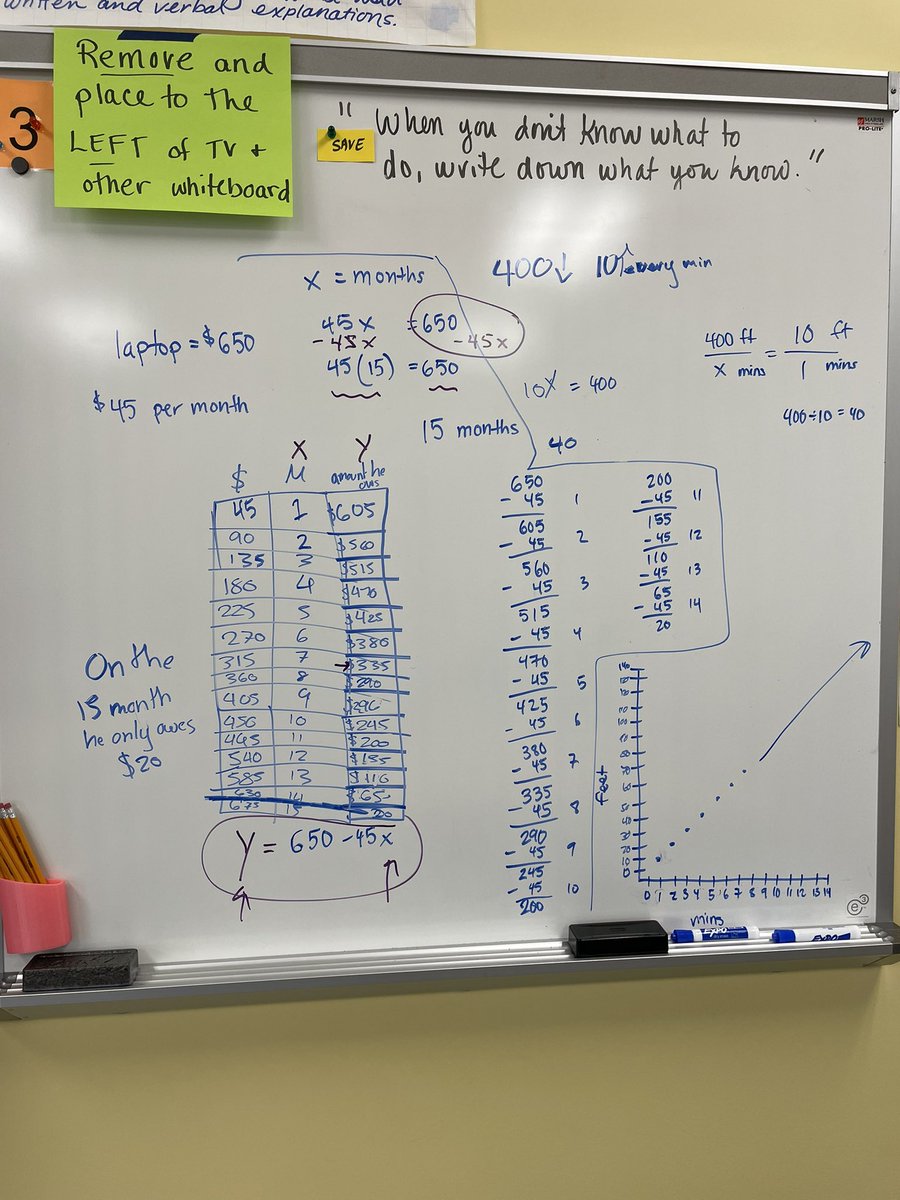 written and verbal explanations.
3
Remove and
place to the
LEFT of TV +
other whiteboard
SAVE
MARSH
PRO-LITE
"When you don't know what to
do, write down what you know."
x = months
400↓ 10↑ every min
laptop = $650
$45 per month
45x = 650
-45x -45x
45(15) = 650
15 months
10x = 400
40
400 ft / x mins = 10 ft / 1 mins
400÷10 = 40
X Y
$ M amount he owes
45 1 $605
90 2 $560
135 3 $515
180 4 $470
225 5 $425
270 6 $380
315 7 → $335
360 8 $290
405 9
450 10 $245
11 $200
540 12 $155
585 13
630 14 $65
675 15 20
On the
15 month
he only owes
$20
Y = 650 - 45x
650
- 45 1
605
- 45 2
560
- 45 3
515
- 45 4
470
- 45 5
425
- 45 6
380
- 45 7
335
- 45 8
290
- 45 9
245
- 45 10
200
200
- 45 11
155
- 45 12
110
- 45 13
65
- 45 14
20
feet
0 1 2 3 4 5 6 7 8 9 10 11 12 13 14
mins
e3
EXPO
EXPO